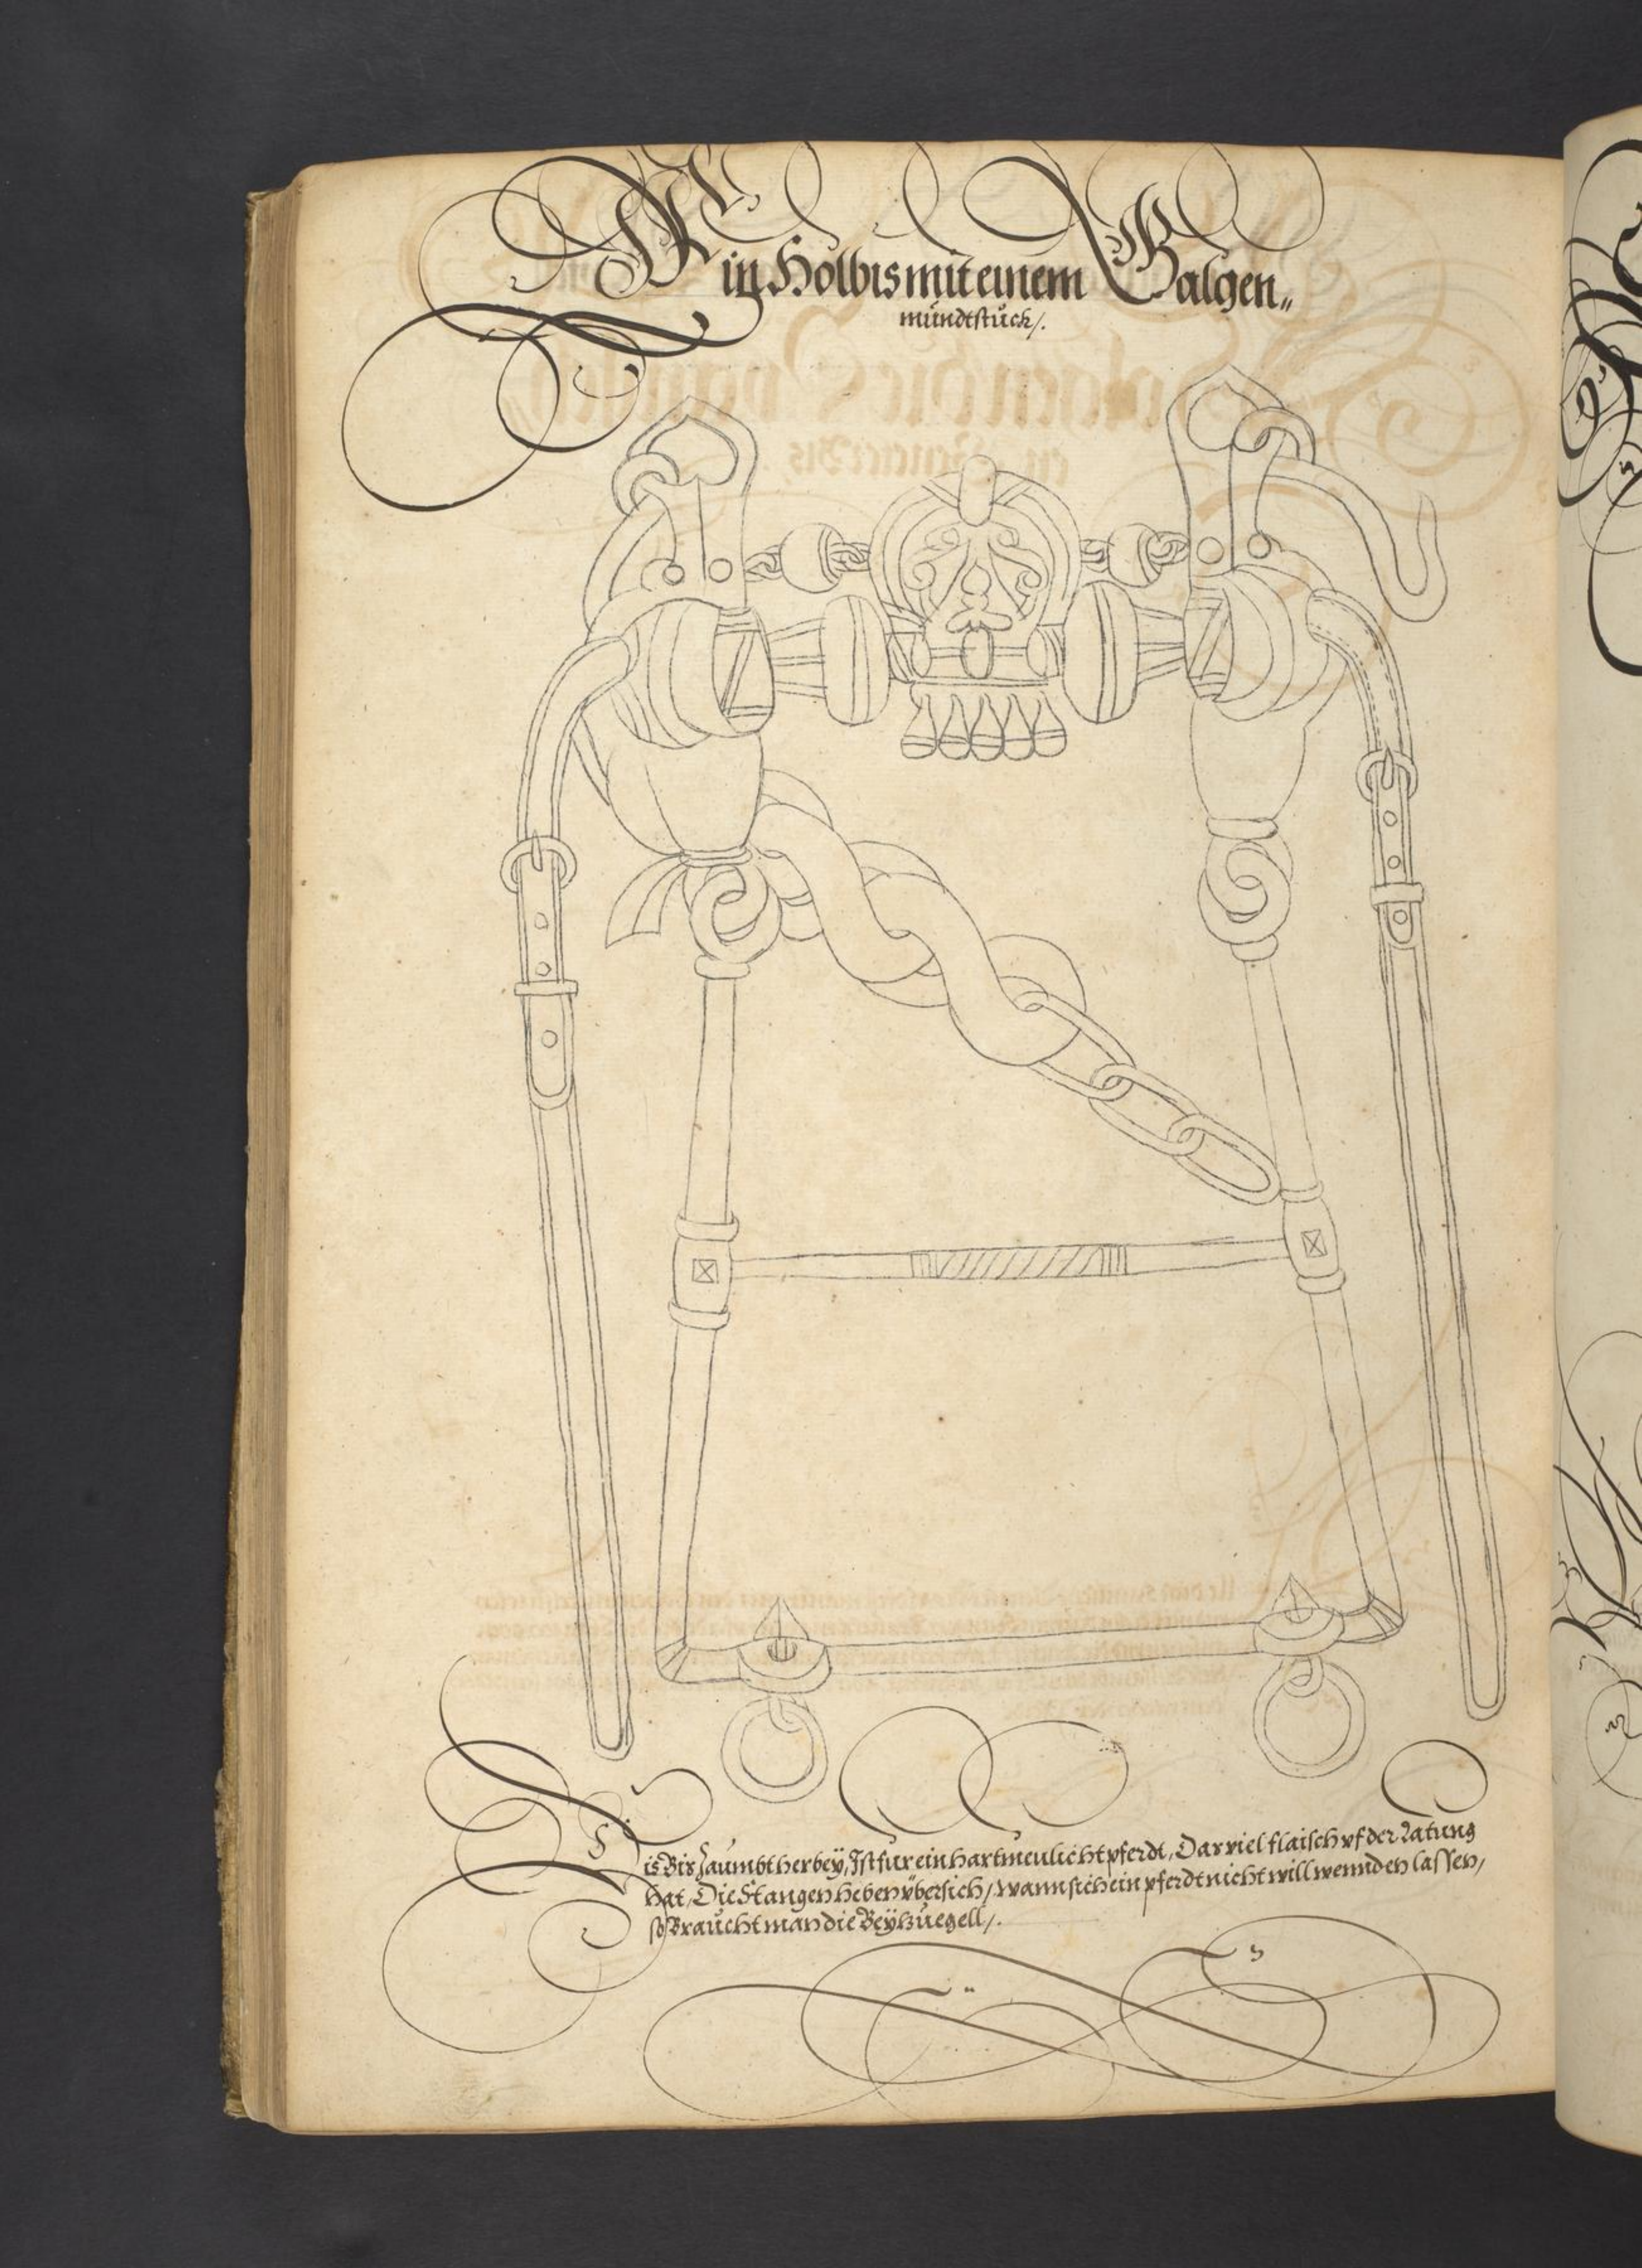 Ein Holbis mit einem Galgen„
mündtstuck/.
Dis Bis Zaumbt herbey, Ist fur ein hartmeulicht pferdt, Dar viel flaisch vf der Latung
hat, Die Stangen heben vbersich, wann sich ein pferdt nicht will wennden lassen,
so Braucht man die Beÿzuegell/.